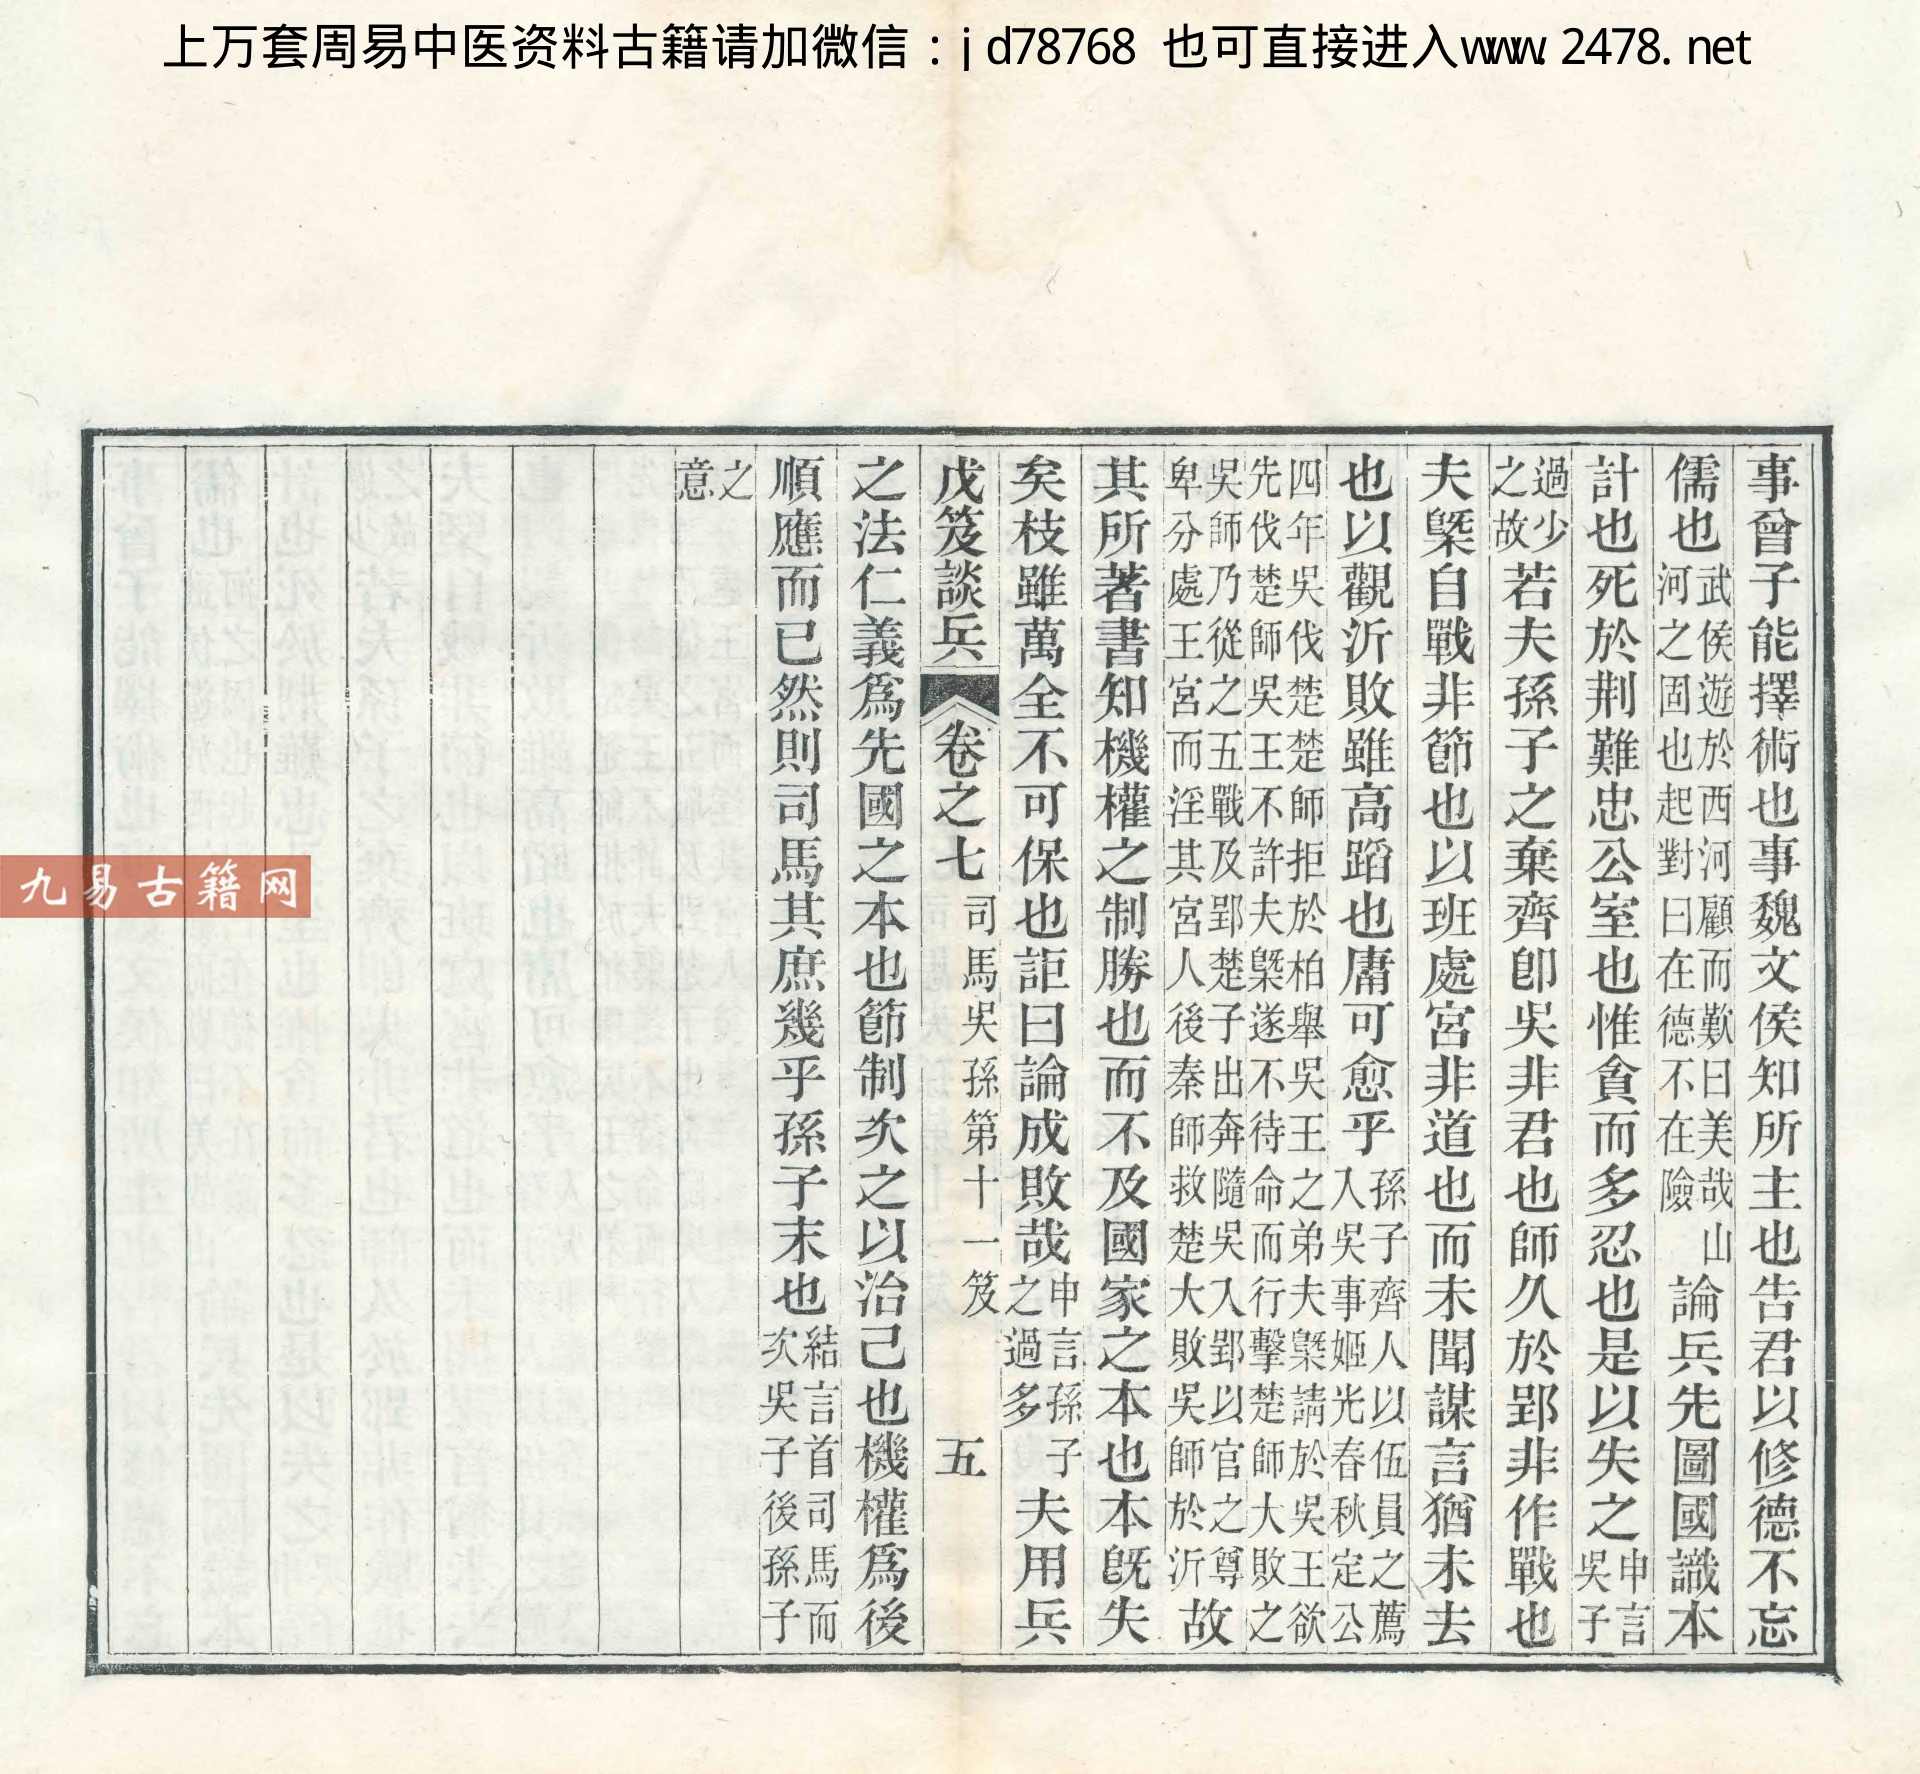 上万套周易中医资料古籍请加微信：jd78768 也可直接进入www.2478.net
事曾子能擇術也事魏文侯知所主也告君以修德不忘
儒也武侯遊於西河顧而歎曰美哉山河之固也起對曰在德不在險論兵先圖國識本
計也死於荆難忠公室也惟貪而多忍也是以失之申言吳子
過少之故若夫孫子之棄齊卽吳非君也師久於郢非作戰也
夫槩自戰非節也以班處宮非道也而未聞謀言猶未去
也以觀沂敗雖高蹈也庸可愈乎孫子齊人以伍員之薦入吳事姬光春秋定公
四年吳伐楚楚師拒於柏舉吳王之弟夫槩請於吳王欲先伐楚師吳王不許夫槩遂不待命而行擊楚師大敗之
吳師乃從之五戰及郢楚子出奔隨吳入郢以官之尊卑分處王宮而淫其宮人後秦師救楚大敗吳師於沂故
其所著書知機權之制勝也而不及國家之本也本旣失
矣枝雖萬全不可保也詎曰論成敗哉申言孫子之過多夫用兵
戊笈談兵 卷之七 司馬吳孫第十一笈 五
之法仁義爲先國之本也節制次之以治己也機權爲後
順應而已然則司馬其庶幾乎孫子末也結言首司馬而次吳子後孫子
之意
九易古籍网